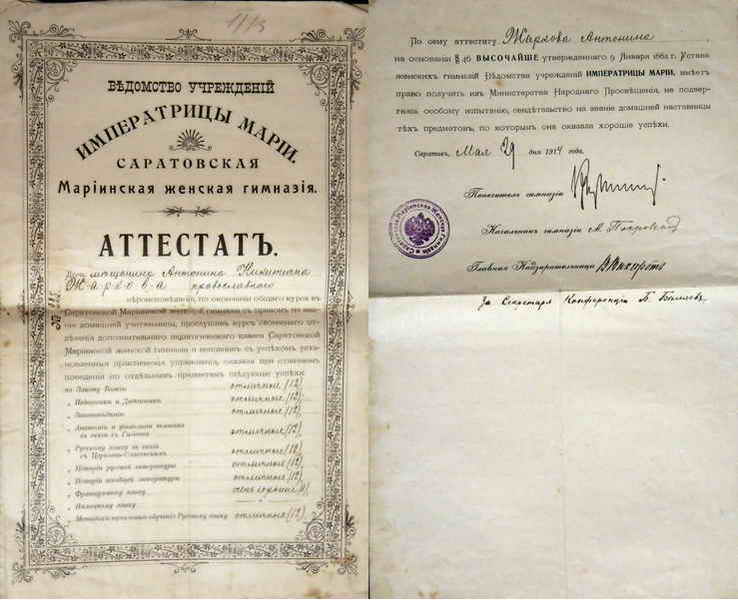 1113
ВѢДОМСТВО УЧРЕЖДЕНІЙ
ИМПЕРАТРИЦЫ МАРІИ.
САРАТОВСКАЯ
Маріинская женская гимназія.
АТТЕСТАТЪ.
Дочь мѣщанина Антонина Никитична
Жаркова православнаго
вѣроисповѣданія, по окончаніи общаго курса въ
Саратовской Маріинской женской гимназіи съ правомъ на званіе домашней учительницы, прослушавъ курсъ словеснаго отдѣленія дополнительнаго педагогическаго класса Саратовской
Маріинской женской гимназіи и исполнивъ съ успѣхомъ установленныя практическія упражненія, оказала при отличномъ
поведеніи по отдѣльнымъ предметамъ слѣдующіе успѣхи:
по Закону Божію отличные (12)
„ Педагогикѣ и Дидактикѣ отличные (12)
„ Законовѣдѣнію отличные (12)
„ Анатоміи и физіологіи человѣка
въ связи съ Гигіеной отличные (12)
„ Русскому языку въ связи
съ Церковно-Славянскимъ отличные (12)
„ Исторіи русской литературы отличные (12)
„ Исторіи всеобщей литературы отличные (12)
„ Французскому языку очень хорошіе (11)
„ Нѣмецкому языку
„ Методикѣ начальнаго обученія Русскому языку отличные (12)
По сему аттестату Жаркова Антонина
на основаніи § 46 ВЫСОЧАЙШЕ утвержденнаго 9 Января 1862 г. Устава
женскихъ гимназій Вѣдомства учрежденій ИМПЕРАТРИЦЫ МАРІИ, имѣетъ
право получить изъ Министерства Народнаго Просвѣщенія, не подвергаясь особому испытанію, свидѣтельство на званіе домашней наставницы
тѣхъ предметовъ, по которымъ она оказала хорошіе успѣхи.
Саратовъ, Мая 29 дня 1914 года.
Попечитель гимназіи
Начальникъ гимназіи А. Покровскій
Главная Надзирательница
За Секретаря Конференціи Б.